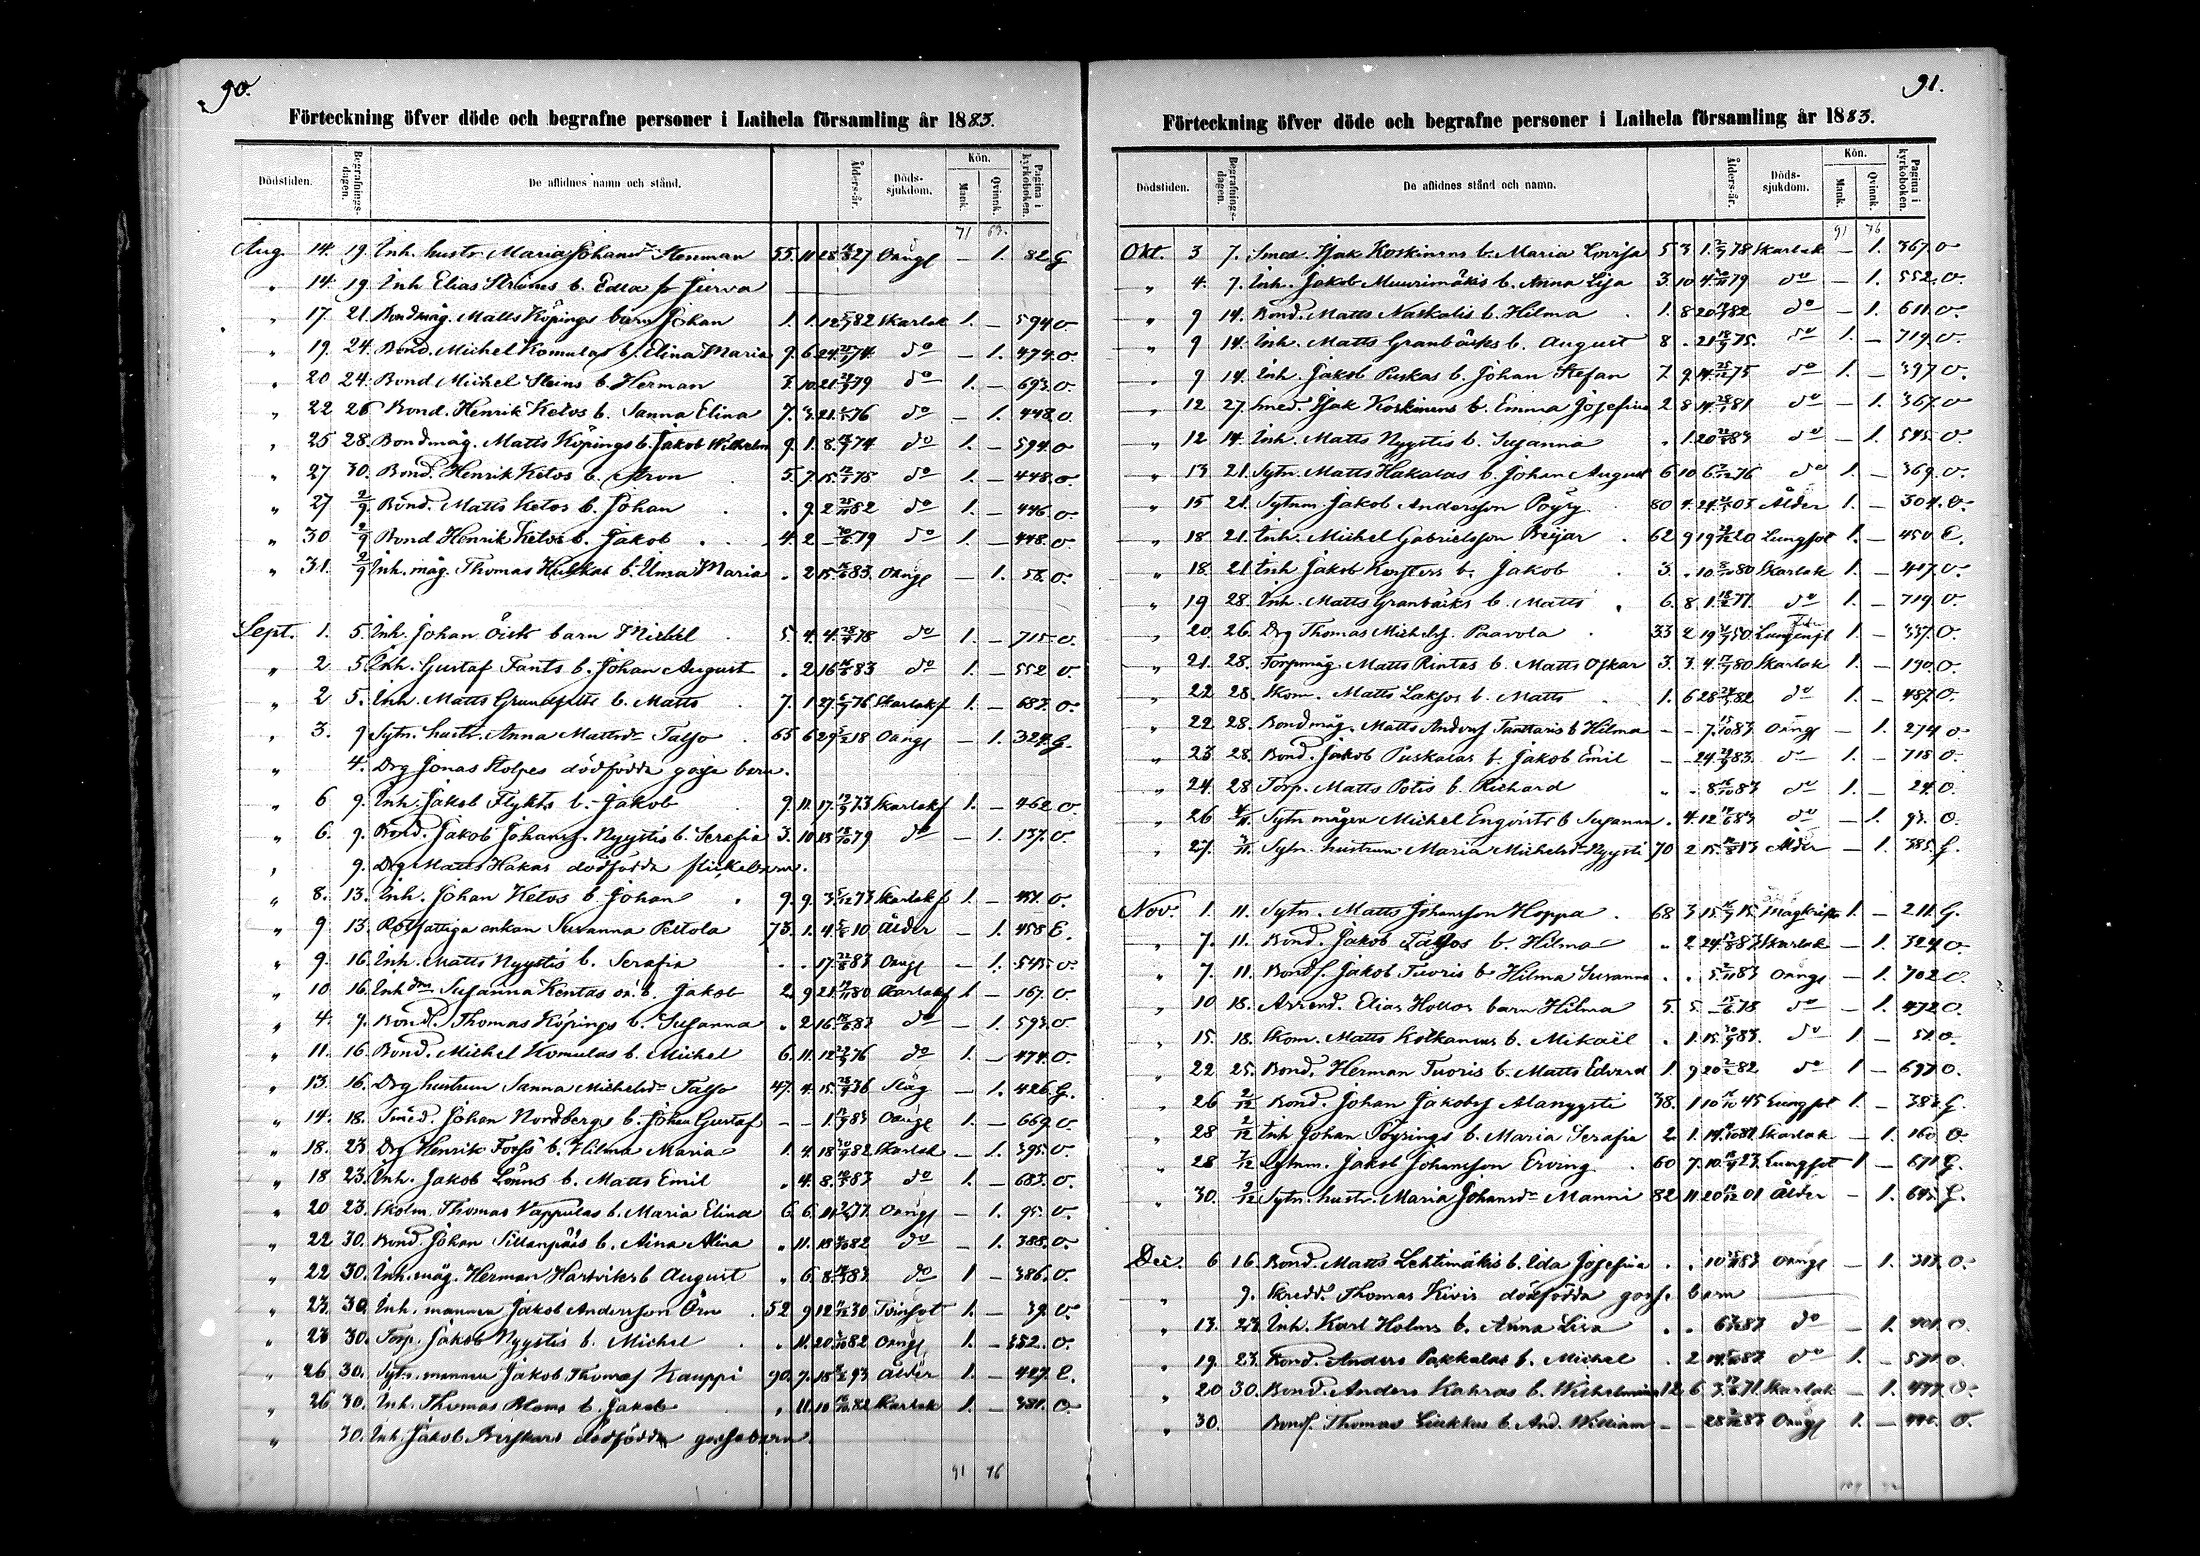 90.
Förteckning öfver döde och begrafne personer i Laihela församling år 1883.
Dödstiden. Begrafnings-dagen. De aflidnes namn och stånd. Ålders-år. Döds-sjukdom. Kön. Mank. Qvinnk. Pagina i kyrkoboken.
71 63.
Aug. 14. 19. Inh. hustr. Maria Johansdr Stenman 55. 11 28 27 Oängl — 1. 82 G
" 14. 19. Inh Elias b. Edla fr Jurva
" 17 21. Bondmåg. Matts Köpings barn Johan 1. 1. 12 82 Skarlak 1. — 594 O
" 19. 24. Bond. Michel Komulas b. Elina Maria 9. 6 24 74 do — 1. 474 O.
" 20 24. Bond Michel Steins b. Herman 10. 21 79 do 1. — 693. O.
" 22 26 Bond. Henrik Ketos b. Sanna Elina 7. 3. 21 76 do — 1. 448 O.
" 25 28. Bondmåg. Matts Köpings b. Jakob Wilhelm 9. 1. 8. 74 do 1. — 594. O
" 27 30. Bond. Henrik Ketos b. 5. 7. 15. do 1. — 448. O
" 27 2/9 Bond. Matts Ketos b. Johan . 9. 2 25/11 82 do 1. — 446 O.
" 30 2/9 Bond Henrik Ketos b. Jakob 4. 2 — 79 do 1. — 448. O.
" 31. 2/9 Inh. måg. Thomas b. Maria . 2 15 83. Oängl — 1. 58. O.
Sept. 1. 5. Inh. Johan barn Michel 5. 4. 4. 78 do 1. — 715. O.
" 2 5. Inh. Gustaf Fants b. Johan August . 2 16 83 do 1. — 552 O.
" 2 5. Inh. Matts b. Matts 7. 1 27 76 Skarlakf 1. — 687. O.
" 3. 9 Sytn. hustr. Anna Mattsdr Talso 65 6 29 18 Oängl — 1. 324. G.
" 4. Drg Jonas Stolpes dödfödda gosse barn.
" 6 9. Inh. Jakob Flykts b. Jakob 9. 11. 17. 73 Skarlakf 1. — 462 O
" 6. 9. Bond. Jakob Johanss. Nyystis b. Serafia 3. 10 18 79 do — 1. 137. O.
" 9. Drg Matts Hakas dödfödda flickebarn.
" 8. 13. Inh. Johan Ketos b. Johan 9. 9. 3 73 Skarlakf 1. — 451. O.
" 9 13. Rotfattiga enkan Susanna Peltola 73. 1. 4. 10 Ålder — 1. 458 E.
" 9. 16. Inh. Matts Nyystis b. Serafia . . 17 22/8 83 Oängl — 1. 545. O.
" 10 16. Inh. Susanna Kentas oä. b. Jakob 2. 9 21. 80 Skarlakf 1 — 167. O.
" 4. 7. Bond. Thomas Köpings b. Susanna . 2 16 83 do — 1. 593. O.
" 11. 16. Bond. Michel Komulas b. Michel 6. 11. 12 76 do 1. — 474. O.
" 13. 16. Drg hustrun Sanna Michelsdr Talso 47. 4. 15. 36 Slag — 1. 426. G.
" 14. 18. Smed. Johan Nordbergs b. Johan Gustaf — — 1. 83 Oängl 1. — 669. O.
" 18. 23. Drg Henrik b. Hilma Maria 1. 4. 18 82 Skarlak — 1. 395. O.
" 18 23. Inh. Jakob b. Matts Emil . 4. 8. 83 do 1. — 683. O.
" 20 23. Skolm. Thomas Vappulas b. Maria Elina 6. 6. 77. Oängl — 1. 95. O.
" 22 30. Bond. Johan Sillanpääs b. Aina Alina . 11. 18 82 do — 1. 388. O.
" 22 30. Inh. måg. Herman Hartviks b August . 6. 8. 83. do 1 — 386. O.
" 23. 30. Inh. mannen Jakob Andersson Örn 52. 9 12 30 Tvinsot 1. — 39. O.
" 23 30. Torp. Jakob Nyystis b. Michel . 11. 20 82 Oängl 1. — 552. O.
" 26 30. Sytn. mannen Jakob Thomass Kauppi 90. 7. 18 93 Ålder 1. — 427. E.
" 26 30. Inh. Thomas b. Jakob . 11. 10 82 Skarlak 1. — 381. O
" 30. Inh. Jakob dödfödda gossebarn.
91 76
91.
Förteckning öfver döde och begrafne personer i Laihela församling år 1883.
Dödstiden. Begrafnings-dagen. De aflidnes stånd och namn. Ålders-år. Döds-sjukdom. Kön. Mank. Qvinnk. Pagina i kyrkoboken.
91 76
Okt. 3 7. Smed. Isak Koskinens b. Maria Lovisa 5 3 1. 78 Skarlak — 1. 367. O
" 4. 7. Inh. Jakob Muurimäkis b. Anna Lisa 3. 10 4. 79 do — 1. 552. O.
" 9 14. Bond. Matts Naskalis b. Hilma 1. 8 20 82 do — 1. 611. O.
" 9 14. Inh. Matts Granbäcks b. August 8 . 21 75. do 1. — 719. O.
" 9 14. Inh. Jakob Puskas b. Johan Stefan 7. 9. 14. 25/12 75 do 1. — 397 O.
" 12 27. Smed. Isak Koskinens b. Emma Josefina 2 8 14 81 do — 1. 367. O
" 12 14. Inh. Matts Nyystis b. Susanna . 1. 20 22/8 83 do — 1. 545. O
" 13 21. Sytn. Matts Hakalas b. Johan August 6 10 6 76 do 1. — 369. O.
" 15 21. Sytnm. Jakob Andersson Pöyry 80 4. 24 03 Ålder 1. — 304. O.
" 18 21. Inh. Michel Gabrielsson Beijar 62 9 19 20 Lungsot 1. — 450 E.
" 18. 21. Inh Jakob b. Jakob 3. . 10 80 Skarlak 1. — 417. O.
" 19 28. Inh. Matts Granbäcks b. Matts 6. 8 1. 77. do 1. — 719 O.
" 20. 26. Drg Thomas Michelss. Paavola 33 2 19 50 1. — 337. O.
" 21. 28. Torpmåg. Matts Rintas b. Matts Oskar 3. 3. 4. 80 Skarlak 1. — 190. O.
" 22 28. Skom. Matts Laksos b. Matts 1. 6 28 82 do 1. — 487. O.
" 22. 28. Bondmåg. Matts Anderss Tanttaris b Hilma — — 7. 83 Oängl — 1. 274 O
" 23 28. Bond. Jakob Puskalas b. Jakob Emil — — 24. 83. do 1. — 718 O.
" 24. 28 Torp. Matts Potis b. Richard " — 8 16/10 83 do 1. — 24. O.
" 26 4/11 Sytn mågen Michel Engvists b Susanna . 4. 12 14/6 83 do — 1. 93. O.
" 27. Sytn. hustrun Maria Michelsdr Nyysti 70 2 15. 13 Ålder — 1. 385. G.
Nov. 1. 11. Sytn. Matts Johansson Hoppa 68 3 15 15. Magkräfta 1. — 211. G.
" 7. 11. Bond. Jakob Talsos b. Hilma . 2 24. 83 Skarlak — 1. 324. O.
" 7. 11. Bonds. Jakob Tuoris b Hilma Susanna . . 5 2/11 83 Oängl — 1. 702 O.
" 10 18. Arrend. Elias Hollos barn Hilma 5. 5. — 78 do — 1. 472 O.
" 15. 18. Skom. Matts Kolkanens b. Mikaël . 1. 15. 30/9 83. do 1. — 51. O.
" 22 25. Bond. Herman Tuoris b. Matts Edvard 1. 9 20 82 do 1 — 697 O.
" 26 2/12 Bond. Johan Jakobss Alanyysti 38. 1 10 45 Lungsot 1. — 383. G.
" 28 2/12 Inh Johan Pöyrings b. Maria Serafia 2. 1. 14. 81 Skarlak — 1. 160 O.
" 28 7/12 Sytnm. Jakob Johansson Erving 60 7. 10. 23. Lungsot 1 — 671 G.
" 30. 9/12 Sytn. hustr. Maria Johansdr Manni 82 11 20 01 Ålder — 1. 645. G.
Dec. 6 16. Bond. Matts Lehtimäkis b. Ida Josefina . . 10 83 Oängl — 1. 313. O.
" 9. Skredd. Thomas Kivis dödfödda goss. barn
" 13. 23. Inh. Karl Holms b. Anna Lisa . . 6 83 do — 1. 401. O.
" 19. 23. Bond. Anders Pakkalas b. Michel . 2 14. 83 do 1. — 571. O.
" 20 30. Bond. Anders Kahras b. Wilhelmina 12 6 3 71 Skarlak — 1. 477. O.
" 30. Bonds. Thomas Liukkus b. And. William — — 28 83 Oängl 1. — 440. O.